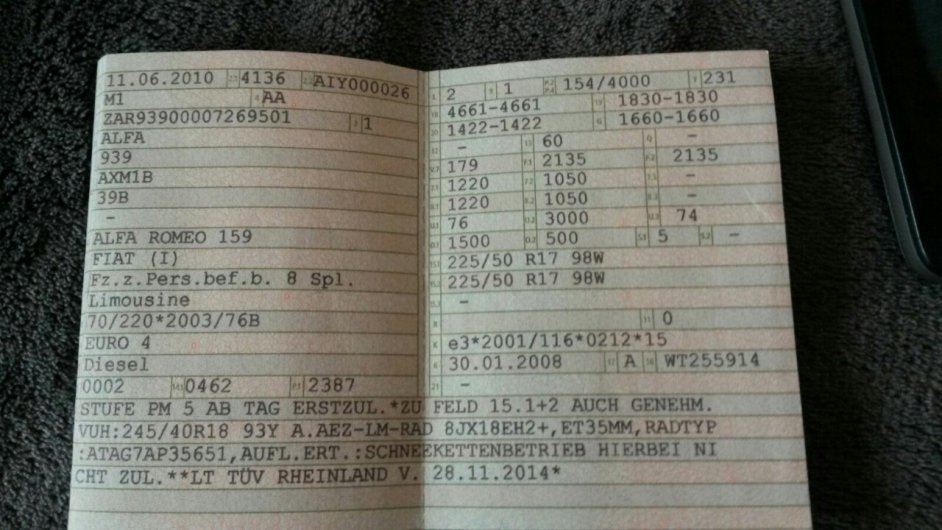 11.06.2010 4136 AIY000026
M1 AA
ZAR93900007269501 1
ALFA
939
AXM1B
39B
-
ALFA ROMEO 159
FIAT (I)
Fz.z.Pers.bef.b. 8 Spl.
Limousine
70/220*2003/76B
EURO 4
Diesel
0002 0462 2387
2 1 154/4000 231
4661-4661 1830-1830
1422-1422 1660-1660
- 60 -
179 2135 2135
1220 1050 -
1220 1050 -
76 3000 74
1500 500 5 -
225/50 R17 98W
225/50 R17 98W
-
0
e3*2001/116*0212*15
30.01.2008 A WT255914
-
STUFE PM 5 AB TAG ERSTZUL.*ZU FELD 15.1+2 AUCH GENEHM.
VUH:245/40R18 93Y A.AEZ-LM-RAD 8JX18EH2+,ET35MM,RADTYP
:ATAG7AP35651,AUFL.ERT.:SCHNEEKETTENBETRIEB HIERBEI NI
CHT ZUL.**LT TÜV RHEINLAND V. 28.11.2014*